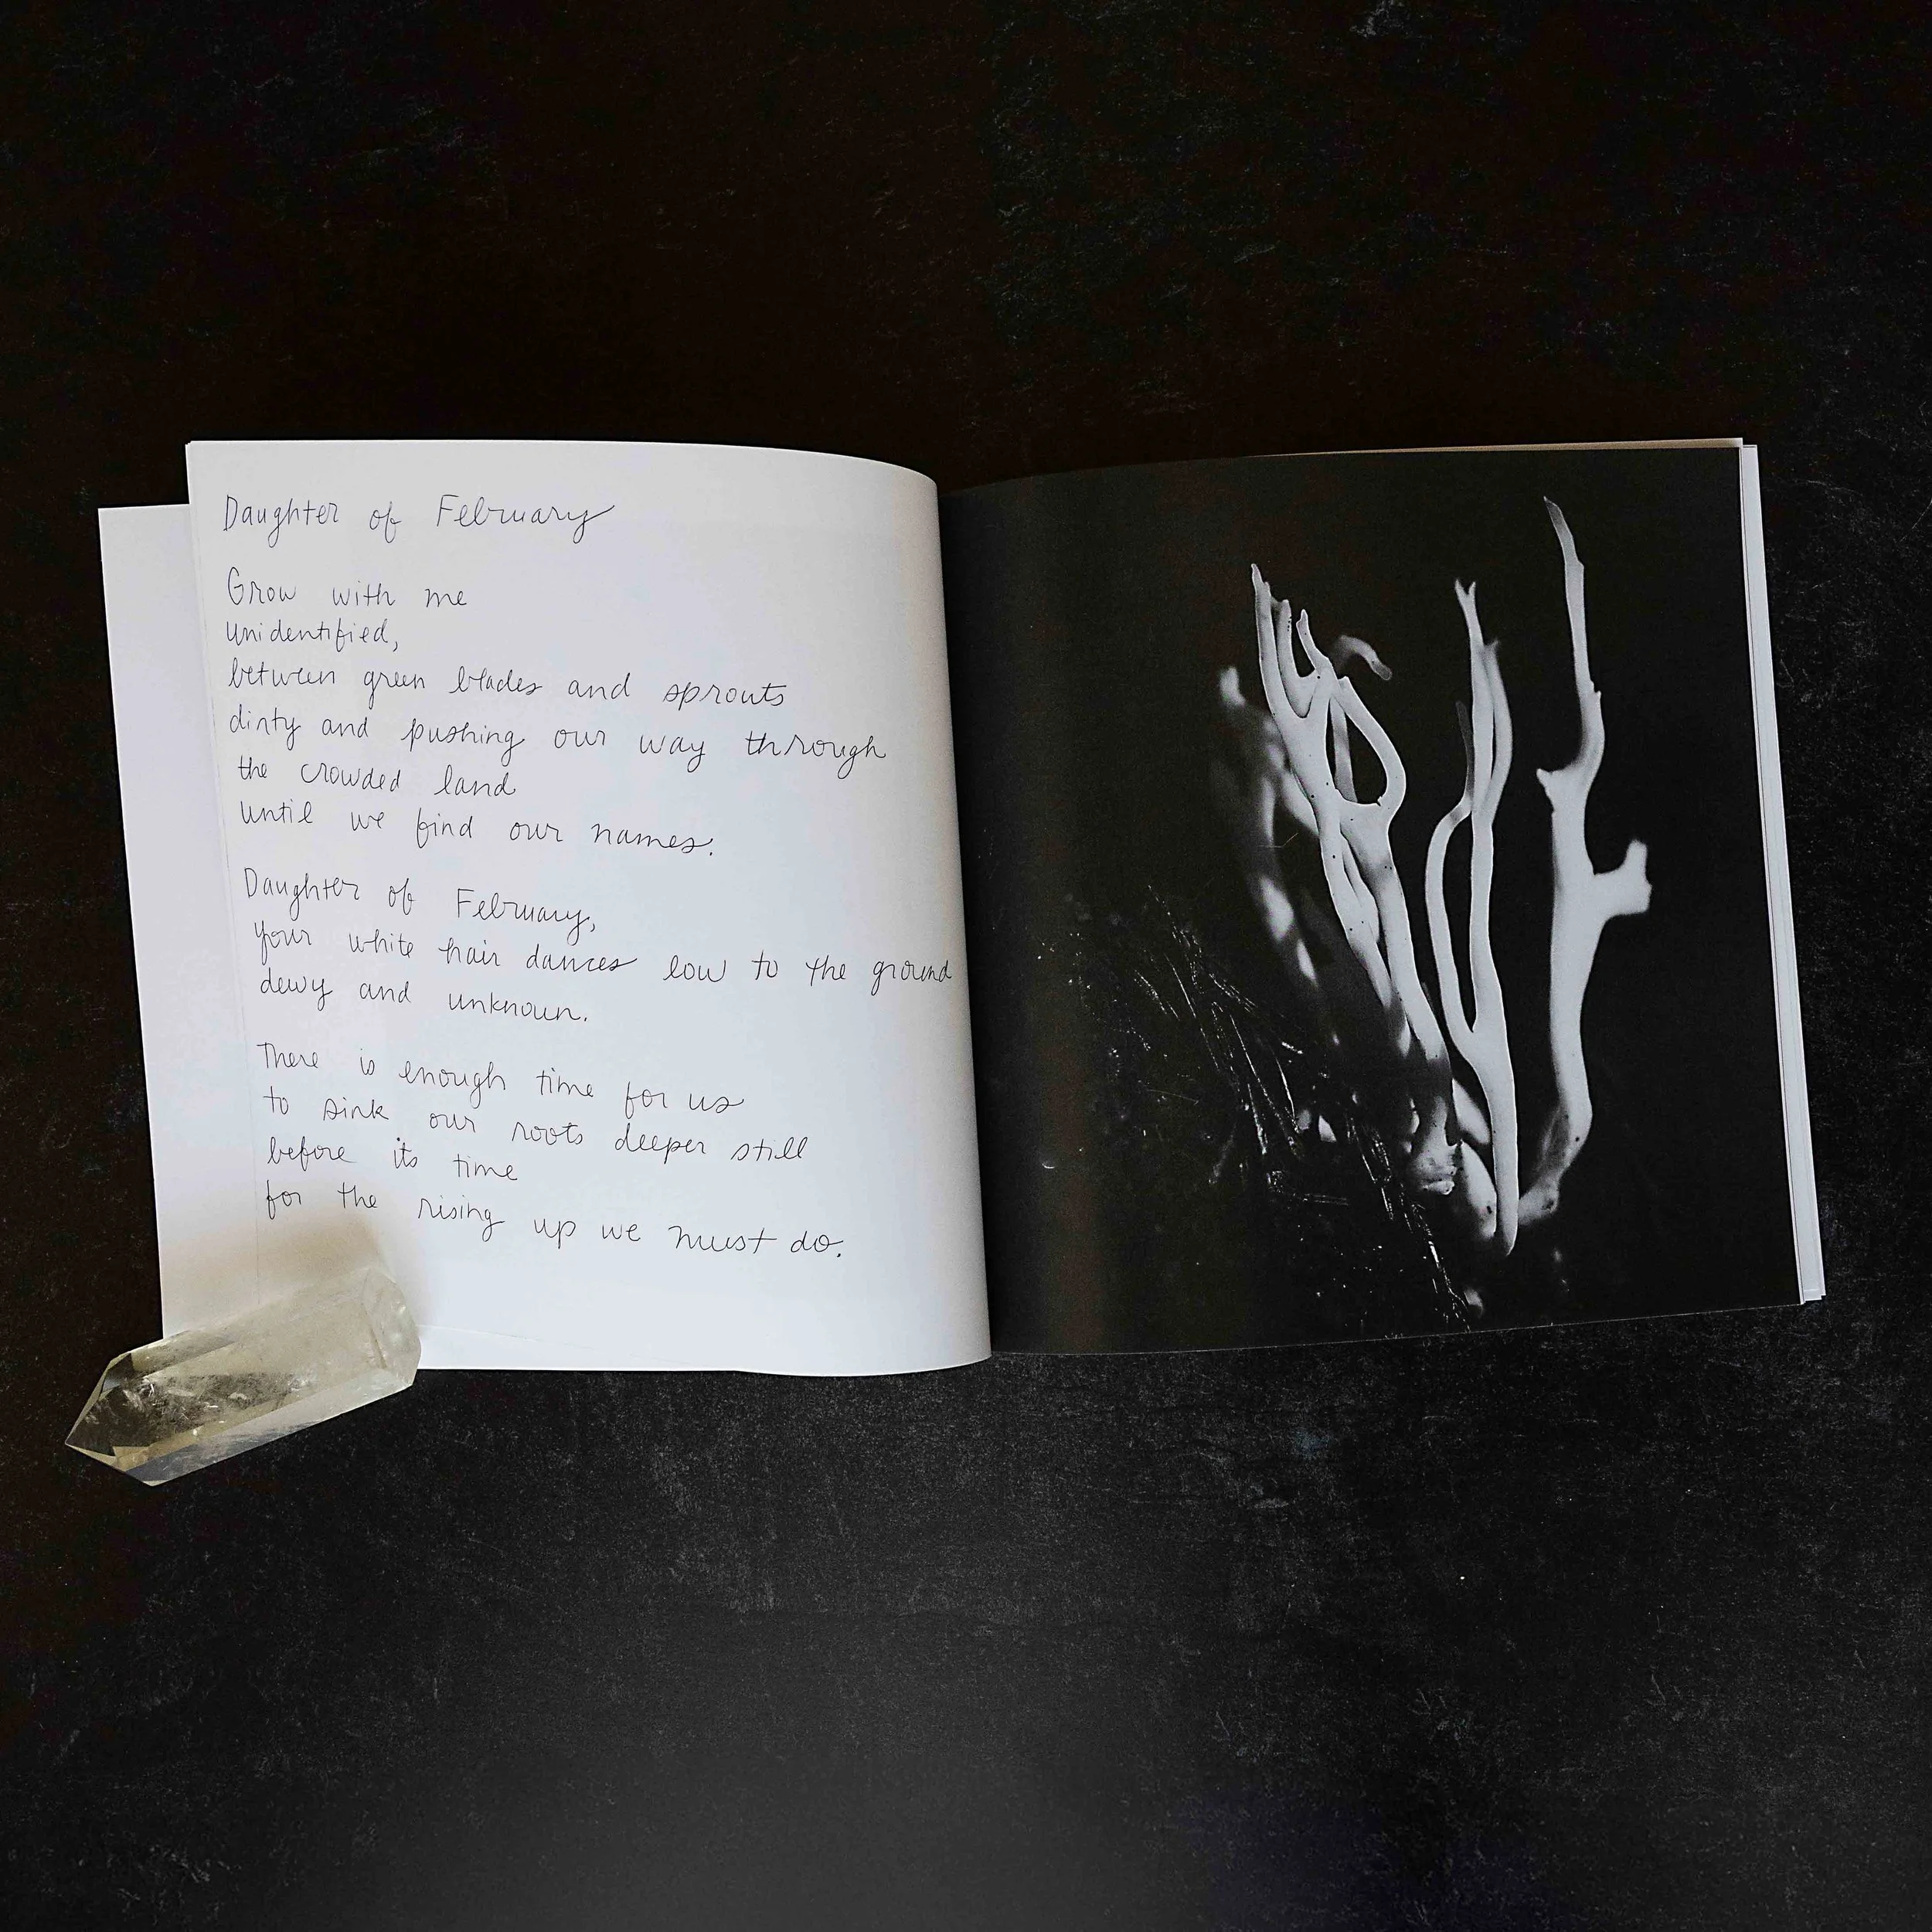 Daughter of February
Grow with me
unidentified,
between green blades and sprouts
dirty and pushing our way through
the crowded land
until we find our names.
Daughter of February,
your white hair dances low to the ground
dewy and unknown.
There is enough time for us
to sink our roots deeper still
before its time
for the rising up we must do.